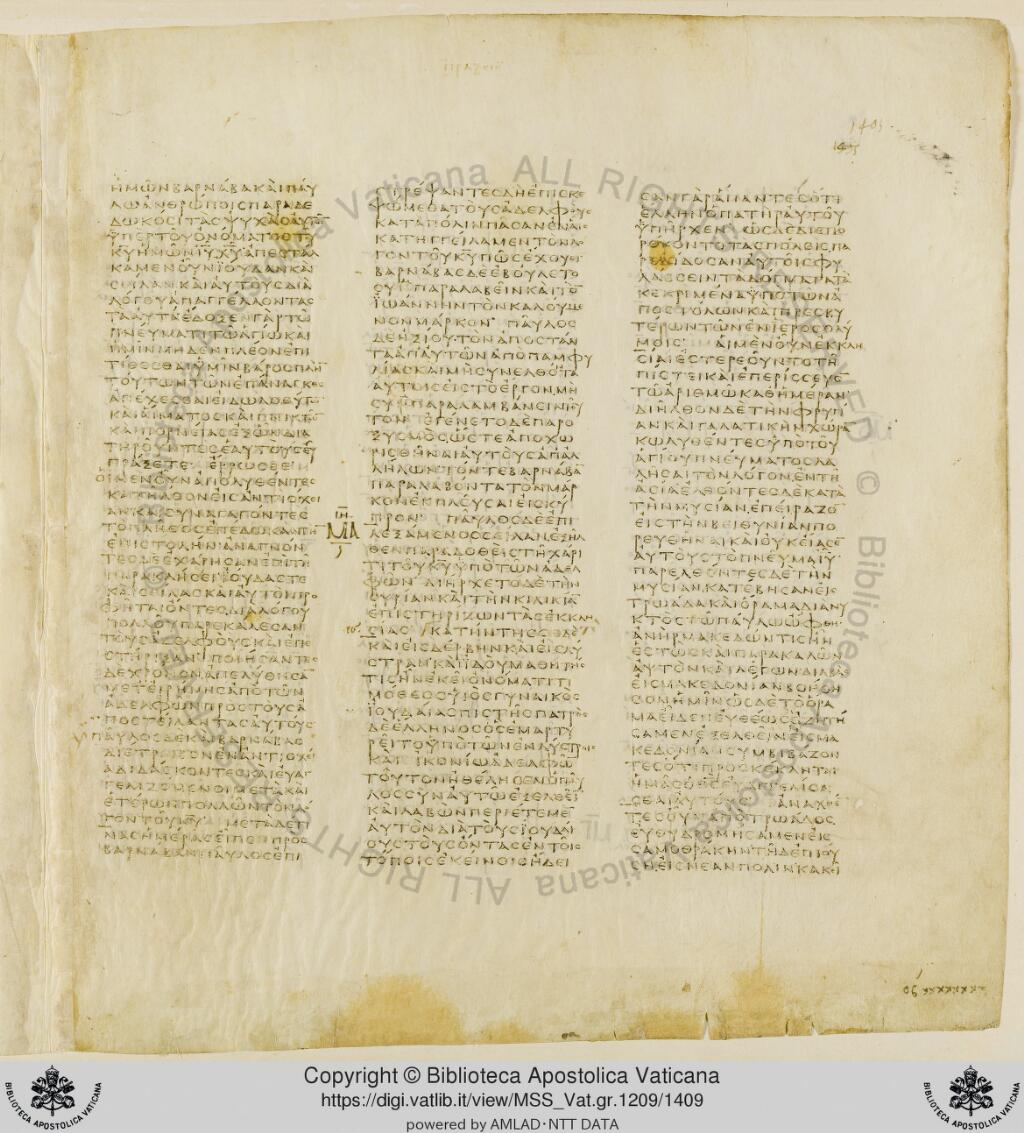 ΠΡΑΞΕΙΣ
1405
ΗΜΩΝΒΑΡΝΑΒΑΚΑΙΠΑΥ
ΛΩΑΝΘΡΩΠΟΙΣΠΑΡΑΔΕ
ΔΩΚΟΣΙΤΑΣΨΥΧΑΣΑΥΤΩ
ΥΠΕΡΤΟΥΟΝΟΜΑΤΟΣΤΟΥ
ΚΥΗΜΩΝΙΥΧΥΑΠΕΣΤΑΛ
ΚΑΜΕΝΟΥΝΙΟΥΔΑΝΚΑΙ
ΣΙΛΑΝΚΑΙΑΥΤΟΥΣΔΙΑ
ΛΟΓΟΥΑΠΑΓΓΕΛΛΟΝΤΑΣ
ΤΑΑΥΤΑΕΔΟΞΕΝΓΑΡΤΩ
ΠΝΕΥΜΑΤΙΤΩΑΓΙΩΚΑΙ
ΗΜΙΝΜΗΔΕΝΠΛΕΟΝΕΠΙ
ΤΙΘΕΣΘΑΙΥΜΙΝΒΑΡΟΣΠΛΗ
ΤΟΥΤΩΝΤΩΝΕΠΑΝΑΓΚΕΣ
ΑΠΕΧΕΣΘΑΙΕΙΔΩΛΟΘΥΤΩ
ΚΑΙΑΙΜΑΤΟΣΚΑΙΠΝΙΚΤΩ
ΚΑΙΠΟΡΝΕΙΑΣΕΞΩΝΔΙΑ
ΤΗΡΟΥΝΤΕΣΕΑΥΤΟΥΣΕΥ
ΠΡΑΞΕΤΕ ΕΡΡΩΣΘΕ
ΟΙΜΕΝΟΥΝΑΠΟΛΥΘΕΝΤΕΣ
ΚΑΤΗΛΘΟΝΕΙΣΑΝΤΙΟΧΕΙ
ΑΝΚΑΙΣΥΝΑΓΑΓΟΝΤΕΣ
ΤΟΠΛΗΘΟΣΕΠΕΔΩΚΑΝΤΗ
ΕΠΙΣΤΟΛΗΝΑΝΑΓΝΟΝ
ΤΕΣΔΕΕΧΑΡΗΣΑΝΕΠΙΤΗ
ΠΑΡΑΚΛΗΣΕΙΙΟΥΔΑΣΤΕ
ΚΑΙΣΕΙΛΑΣΚΑΙΑΥΤΟΙΠΡΟ
ΦΗΤΑΙΟΝΤΕΣΔΙΑΛΟΓΟΥ
ΠΟΛΛΟΥΠΑΡΕΚΑΛΕΣΑΝ
ΤΟΥΣΑΔΕΛΦΟΥΣΚΑΙΕΠΕ
ΣΤΗΡΙΞΑΝ ΠΟΙΗΣΑΝΤΕΣ
ΔΕΧΡΟΝΟΝΑΠΕΛΥΘΗΣΑ
ΜΕΤΕΙΡΗΝΗΣΑΠΟΤΩΝ
ΑΔΕΛΦΩΝΠΡΟΣΤΟΥΣΑ
ΠΟΣΤΕΙΛΑΝΤΑΣΑΥΤΟΥΣ
ΠΑΥΛΟΣΔΕΚΑΙΒΑΡΝΑΒΑΣ
ΔΙΕΤΡΙΒΟΝΕΝΑΝΤΙΟΧΕΙ
ΑΔΙΔΑΣΚΟΝΤΕΣΚΑΙΕΥΑΓ
ΓΕΛΙΖΟΜΕΝΟΙΜΕΤΑΚΑΙ
ΕΤΕΡΩΝΠΟΛΛΩΝΤΟΝΛΟ
ΓΟΝΤΟΥΚΥ ΜΕΤΑΔΕΤΙ
ΝΑΣΗΜΕΡΑΣΕΙΠΕΝΠΡΟΣ
ΒΑΡΝΑΒΑΝΠΑΥΛΟΣΕΠΙ
ΣΤΡΕΨΑΝΤΕΣΔΗΕΠΙΣΚΕ
ΨΩΜΕΘΑΤΟΥΣΑΔΕΛΦΟΥΣ
ΚΑΤΑΠΟΛΙΝΠΑΣΑΝΕΝΑΙΣ
ΚΑΤΗΓΓΕΙΛΑΜΕΝΤΟΝΛΟ
ΓΟΝΤΟΥΚΥΠΩΣΕΧΟΥΣΙ
ΒΑΡΝΑΒΑΣΔΕΕΒΟΥΛΕΤΟ
ΣΥΜΠΑΡΑΛΑΒΕΙΝΚΑΙΤΟ
ΙΩΑΝΗΝΤΟΝΚΑΛΟΥΜΕ
ΝΟΝΜΑΡΚΟΝ ΠΑΥΛΟΣ
ΔΕΗΞΙΟΥΤΟΝΑΠΟΣΤΑΝ
ΤΑΑΠΑΥΤΩΝΑΠΟΠΑΜΦΥ
ΛΙΑΣΚΑΙΜΗΣΥΝΕΛΘΟΝΤΑ
ΑΥΤΟΙΣΕΙΣΤΟΕΡΓΟΝΜΗ
ΣΥΜΠΑΡΑΛΑΜΒΑΝΕΙΝΤΟΥ
ΤΟΝΕΓΕΝΕΤΟΔΕΠΑΡΟ
ΞΥΣΜΟΣΩΣΤΕΑΠΟΧΩ
ΡΙΣΘΗΝΑΙΑΥΤΟΥΣΑΠΑΛ
ΛΗΛΩΝΤΟΝΤΕΒΑΡΝΑΒΑ
ΠΑΡΑΛΑΒΟΝΤΑΤΟΝΜΑΡ
ΚΟΝΕΚΠΛΕΥΣΑΙΕΙΣΚΥ
ΠΡΟΝ ΠΑΥΛΟΣΔΕΕΠΙ
ΛΕΞΑΜΕΝΟΣΣΕΙΛΑΝΕΞΗΛ
ΘΕΝΠΑΡΑΔΟΘΕΙΣΤΗΧΑΡΙ
ΤΙΤΟΥΚΥΥΠΟΤΩΝΑΔΕΛ
ΦΩΝ ΔΙΗΡΧΕΤΟΔΕΤΗΝ
ΣΥΡΙΑΝΚΑΙΤΗΝΚΙΛΙΚΙΑ
ΕΠΙΣΤΗΡΙΖΩΝΤΑΣΕΚΚΛΗ
ΣΙΑΣ ΚΑΤΗΝΤΗΣΕΔΕ
ΚΑΙΕΙΣΔΕΡΒΗΝΚΑΙΕΙΣΛΥ
ΣΤΡΑΝΚΑΙΙΔΟΥΜΑΘΗΤΗΣ
ΤΙΣΗΝΕΚΕΙΟΝΟΜΑΤΙΤΙ
ΜΟΘΕΟΣΥΙΟΣΓΥΝΑΙΚΟΣ
ΙΟΥΔΑΙΑΣΠΙΣΤΗΣΠΑΤΡΟΣ
ΔΕΕΛΛΗΝΟΣΟΣΕΜΑΡΤΥ
ΡΕΙΤΟΥΠΟΤΩΝΕΝΛΥΣΤΡΟΙΣ
ΚΑΙΙΚΟΝΙΩΑΔΕΛΦΩ
ΤΟΥΤΟΝΗΘΕΛΗΣΕΝΟΠΑΥ
ΛΟΣΣΥΝΑΥΤΩΕΞΕΛΘΕΙ
ΚΑΙΛΑΒΩΝΠΕΡΙΕΤΕΜΕ
ΑΥΤΟΝΔΙΑΤΟΥΣΙΟΥΔΑΙ
ΟΥΣΤΟΥΣΟΝΤΑΣΕΝΤΟΙΣ
ΤΟΠΟΙΣΕΚΕΙΝΟΙΣΗΔΕΙ
ΣΑΝΓΑΡΑΠΑΝΤΕΣΟΤΙ
ΕΛΛΗΝΟΠΑΤΗΡΑΥΤΟΥ
ΥΠΗΡΧΕΝ ΩΣΔΕΔΙΕΠΟ
ΡΕΥΟΝΤΟΤΑΣΠΟΛΕΙΣΠΑ
ΡΕΔΙΔΟΣΑΝΑΥΤΟΙΣΦΥ
ΛΑΣΣΕΙΝΤΑΔΟΓΜΑΤΑΤΑ
ΚΕΚΡΙΜΕΝΑΥΠΟΤΩΝΑ
ΠΟΣΤΟΛΩΝΚΑΙΠΡΕΣΒΥ
ΤΕΡΩΝΤΩΝΕΝΙΕΡΟΣΟΛΥ
ΜΟΙΣ ΑΙΜΕΝΟΥΝΕΚΚΛΗ
ΣΙΑΙΕΣΤΕΡΕΟΥΝΤΟΤΗ
ΠΙΣΤΕΙΚΑΙΕΠΕΡΙΣΣΕΥΟ
ΤΩΑΡΙΘΜΩΚΑΘΗΜΕΡΑΝ
ΔΙΗΛΘΟΝΔΕΤΗΝΦΡΥΓΙ
ΑΝΚΑΙΓΑΛΑΤΙΚΗΝΧΩΡΑ
ΚΩΛΥΘΕΝΤΕΣΥΠΟΤΟΥ
ΑΓΙΟΥΠΝΕΥΜΑΤΟΣΛΑ
ΛΗΣΑΙΤΟΝΛΟΓΟΝΕΝΤΗ
ΑΣΙΑΕΛΘΟΝΤΕΣΔΕΚΑΤΑ
ΤΗΝΜΥΣΙΑΝΕΠΕΙΡΑΖΟ
ΕΙΣΤΗΝΒΕΙΘΥΝΙΑΝΠΟ
ΡΕΥΘΗΝΑΙΚΑΙΟΥΚΕΙΑΣΕ
ΑΥΤΟΥΣΤΟΠΝΕΥΜΑΙΥ
ΠΑΡΕΛΘΟΝΤΕΣΔΕΤΗΝ
ΜΥΣΙΑΝΚΑΤΕΒΗΣΑΝΕΙΣ
ΤΡΩΑΔΑΚΑΙΟΡΑΜΑΔΙΑΝΥ
ΚΤΟΣΤΩΠΑΥΛΩΩΦΘΗ
ΑΝΗΡΜΑΚΕΔΩΝΤΙΣΗΝ
ΕΣΤΩΣΚΑΙΠΑΡΑΚΑΛΩΝ
ΑΥΤΟΝΚΑΙΛΕΓΩΝΔΙΑΒΑΣ
ΕΙΣΜΑΚΕΔΟΝΙΑΝΒΟΗΘΗ
ΣΟΝΗΜΙΝΩΣΔΕΤΟΟΡΑ
ΜΑΕΙΔΕΝΕΥΘΕΩΣΕΖΗΤΗ
ΣΑΜΕΝΕΞΕΛΘΕΙΝΕΙΣΜΑ
ΚΕΔΟΝΙΑΝΣΥΜΒΙΒΑΖΟΝ
ΤΕΣΟΤΙΠΡΟΣΚΕΚΛΗΤΑΙ
ΗΜΑΣΟΘΣΕΥΑΓΓΕΛΙΣΑ
ΣΘΑΙΑΥΤΟΥΣ ΑΝΑΧΘΕ
ΤΕΣΟΥΝΑΠΟΤΡΩΑΔΟΣ
ΕΥΘΥΔΡΟΜΗΣΑΜΕΝΕΙΣ
ΣΑΜΟΘΡΑΚΗΝΤΗΔΕΕΠΙΟΥ
ΣΗΕΙΣΝΕΑΝΠΟΛΙΝΚΑΚΕΙ
Copyright © Biblioteca Apostolica Vaticana
https://digi.vatlib.it/view/MSS_Vat.gr.1209/1409
powered by AMLAD·NTT DATA
BIBLIOTECA APOSTOLICA VATICANA
BIBLIOTECA APOSTOLICA VATICANA